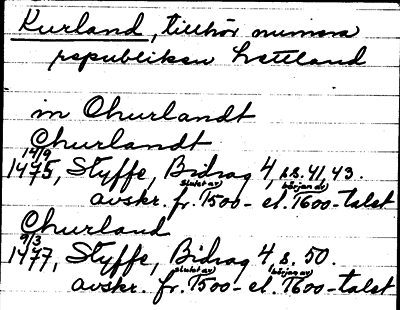 Kurland, tillhör numera
republiken Lettland
in Churlandt
Churlandt
12/9
1475, Styffe, Bidrag 4, s.s. 41, 43.
slutet av början av
avskr. fr. 1500- el. 1600-talet
Churland
9/3
1477, Styffe, Bidrag 4, s. 50.
slutet av början av
avskr. fr. 1500- el. 1600-talet